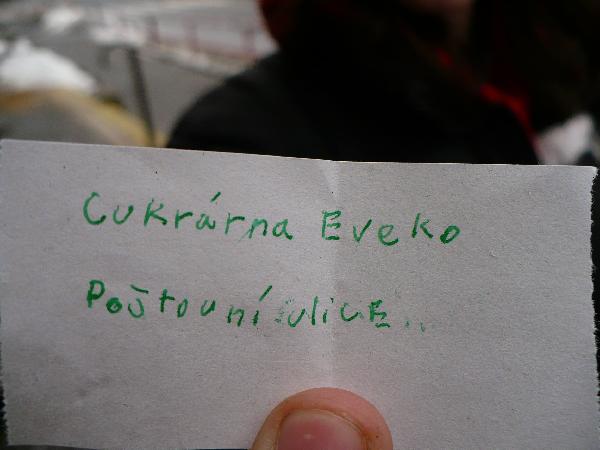 Cukrárna Eveko
Poštouní ulicE..